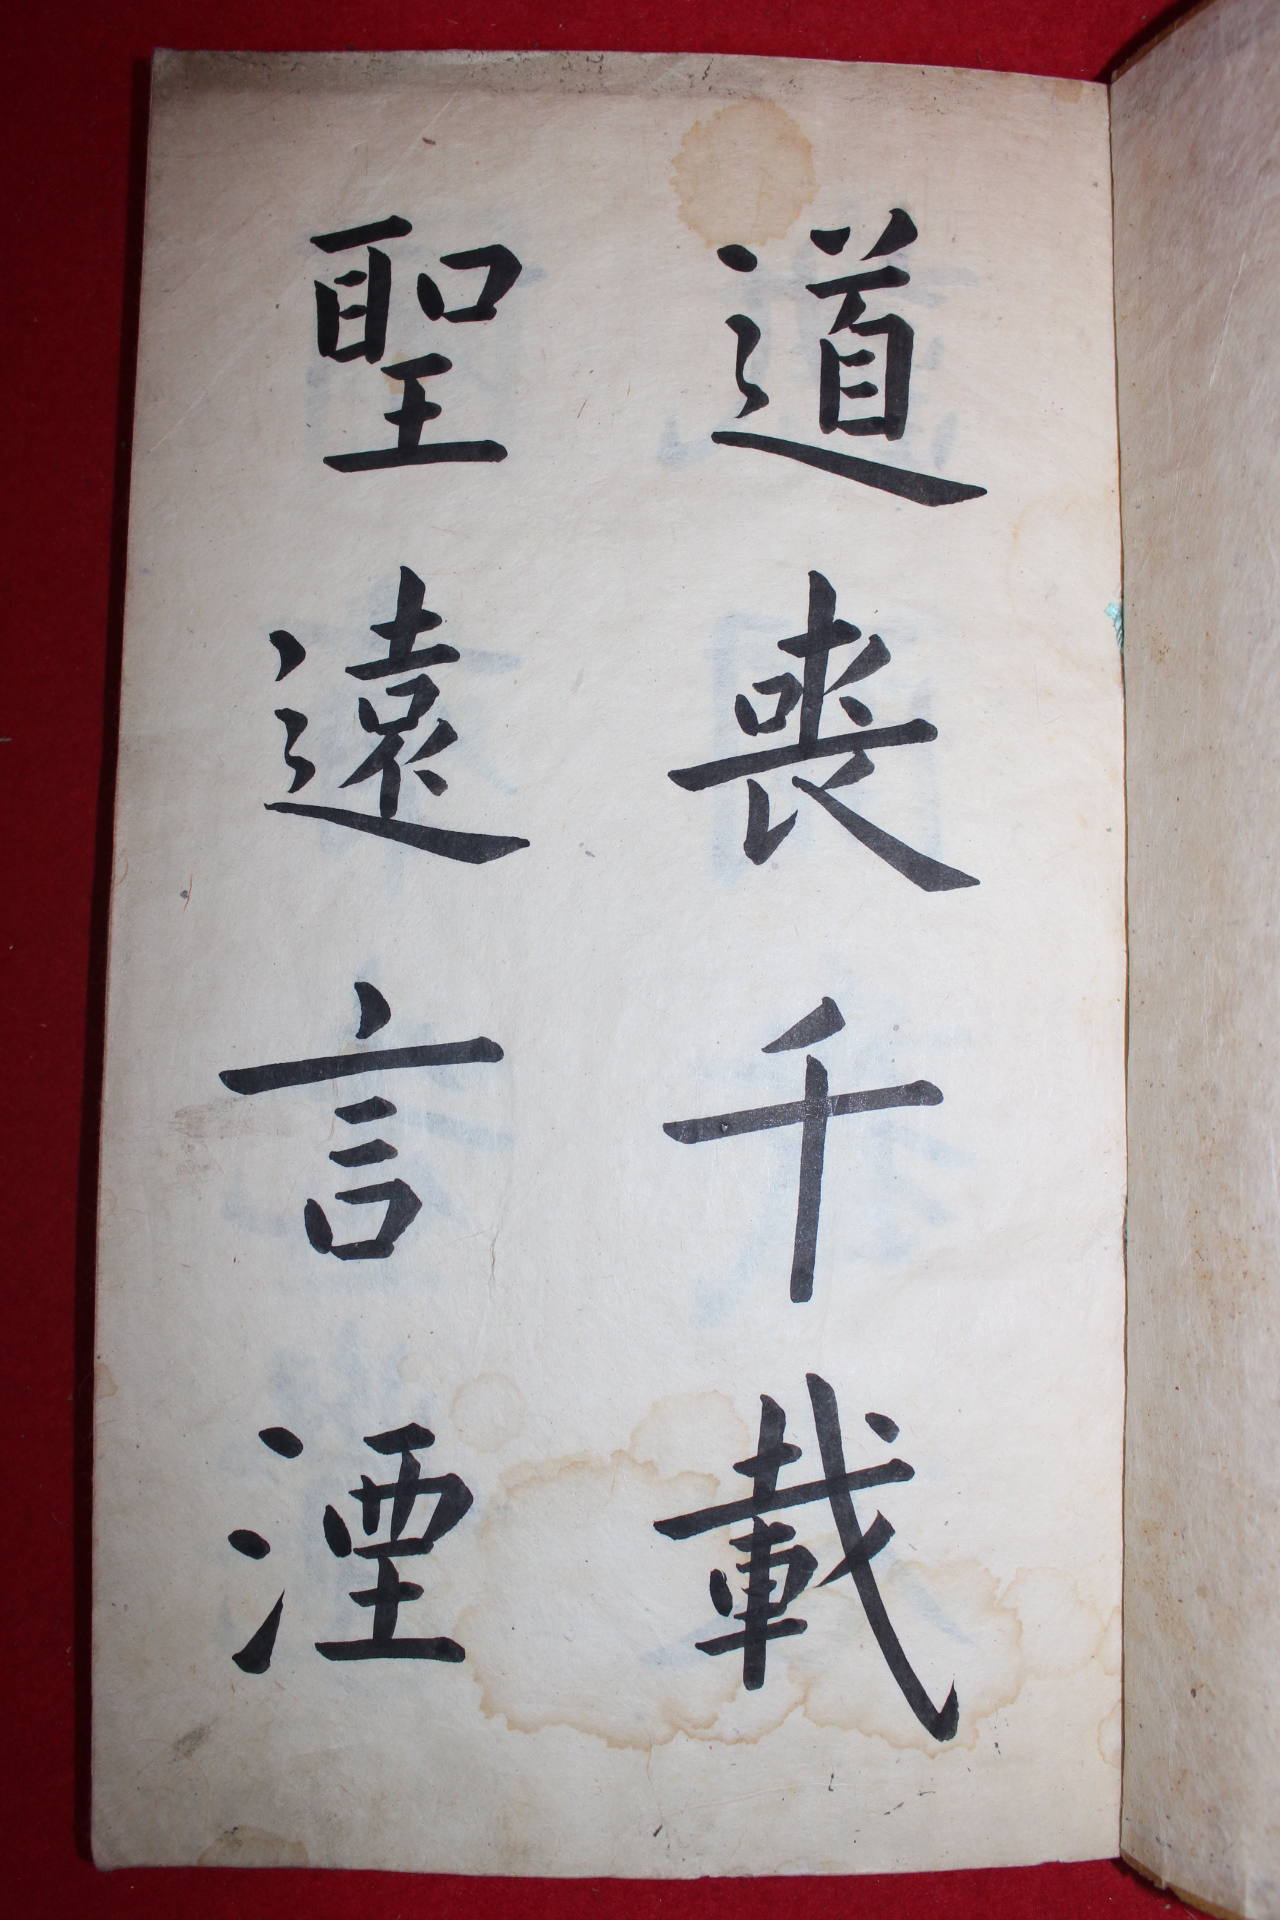 道喪千載
聖遠言湮